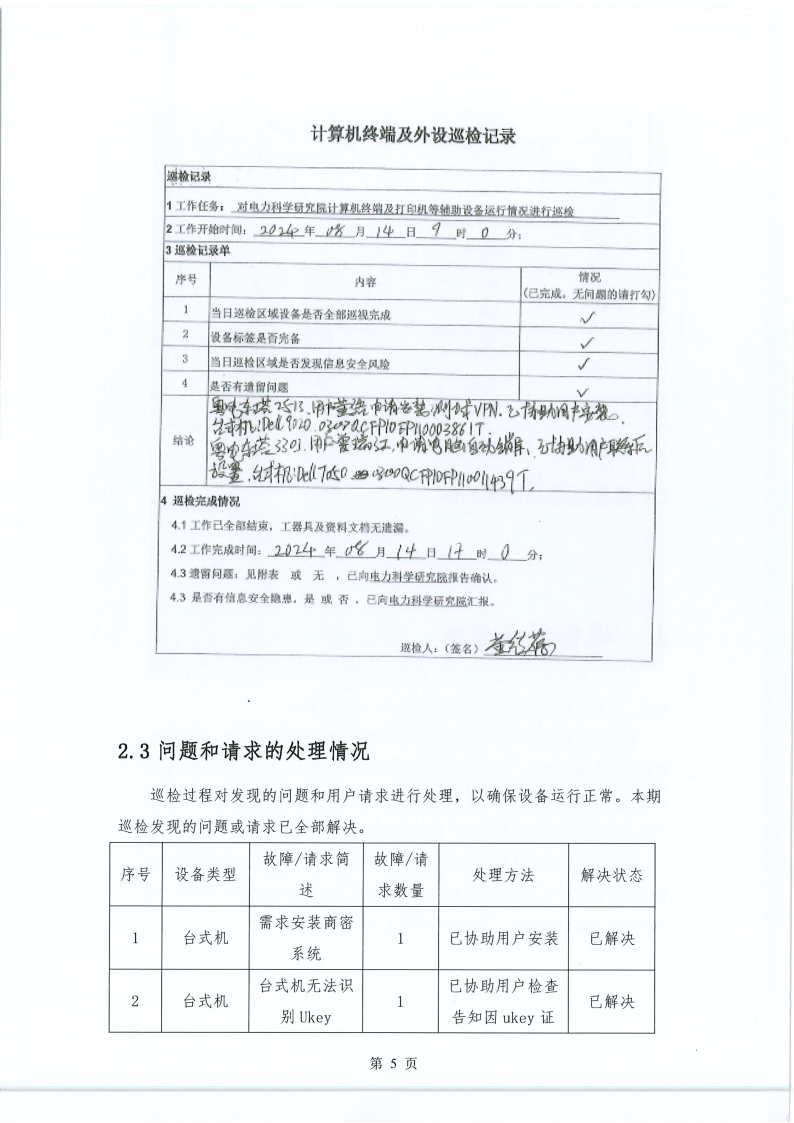 计算机终端及外设巡检记录
巡检记录
1 工作任务: 对电力科学研究院计算机终端及打印机等辅助设备运行情况进行巡检
2 工作开始时间: 2024 年 08 月 14 日 9 时 0 分;
3 巡检记录单
序号 内容 情况
(已完成,无问题的请打勾)
1 当日巡检区域设备是否全部巡视完成 ✓
2 设备标签是否完备 ✓
3 当日巡检区域是否发现信息安全风险 ✓
4 是否有遗留问题 ✓
结论
粤电东塔2513,用户 申请安装 VPN,已协助用户安装。
台式机:Dell 9020
粤电东塔3301,用户 申请电脑自动锁屏,已协助用户
设置,台式机:Dell 7050
4 巡检完成情况
4.1 工作已全部结束,工器具及资料文档无遗漏。
4.2 工作完成时间: 2024 年 08 月 14 日 17 时 0 分;
4.3 遗留问题:见附表 或 无 ,已向电力科学研究院报告确认。
4.3 是否有信息安全隐患,是 或 否 ,已向电力科学研究院汇报。
巡检人:(签名)
2.3 问题和请求的处理情况
巡检过程对发现的问题和用户请求进行处理,以确保设备运行正常。本期
巡检发现的问题或请求已全部解决。
序号 设备类型 故障/请求简述 故障/请求数量 处理方法 解决状态
1 台式机 需求安装商密系统 1 已协助用户安装 已解决
2 台式机 台式机无法识别 Ukey 1 已协助用户检查告知因 ukey 证 已解决
第 5 页